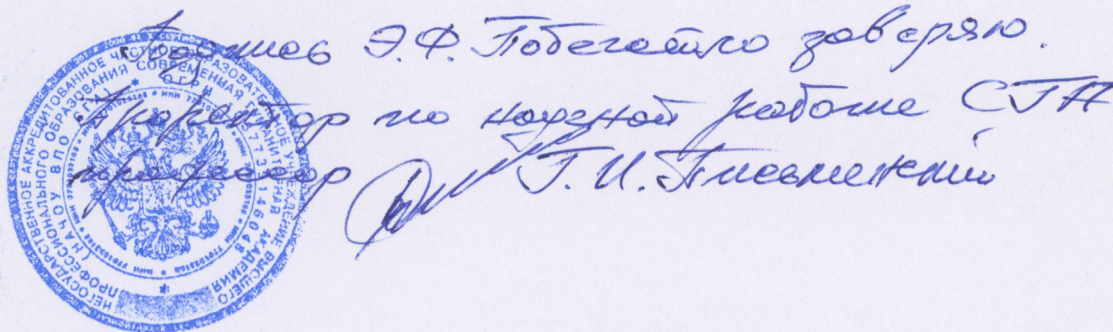 Подпись Э.Ф. Побегайло заверяю.
Проректор по научной работе СГА
профессор Г.И. Письменский
НЕГОСУДАРСТВЕННОЕ АККРЕДИТОВАННОЕ ЧАСТНОЕ ОБРАЗОВАТЕЛЬНОЕ УЧРЕЖДЕНИЕ ВЫСШЕГО
ПРОФЕССИОНАЛЬНОГО ОБРАЗОВАНИЯ СОВРЕМЕННАЯ ГУМАНИТАРНАЯ АКАДЕМИЯ
(НАЧОУ ВПО